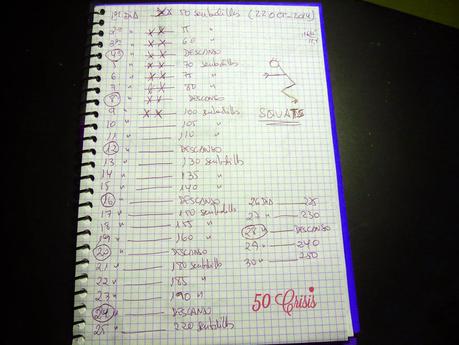 1º DIA xx 50 sentadillas (22 OCT-2014)
2º " xx 55 "
3º " xx 60 "
4º " xx DESCANSO
5 " xx 70 sentadillas
6 " xx 75 "
7 " xx 80 "
8 " xx DESCANSO
9 " xx 100 sentadillas
10 " 105 "
11 " 110 "
12 " DESCANSO
13 " 130 sentadillas
14 " 135 "
15 " 140 "
16 " DESCANSO
17 " 150 sentadillas
18 " 155 "
19 " 160 "
20 " DESCANSO
21 " 180 sentadillas
22 " 185 "
23 " 190 "
24 " DESCANSO
25 " 220 sentadillas
SQUATS
26 DIA 225
27 " 230
28 " DESCANSO
29 " 240
30 " 250
50 Crisis